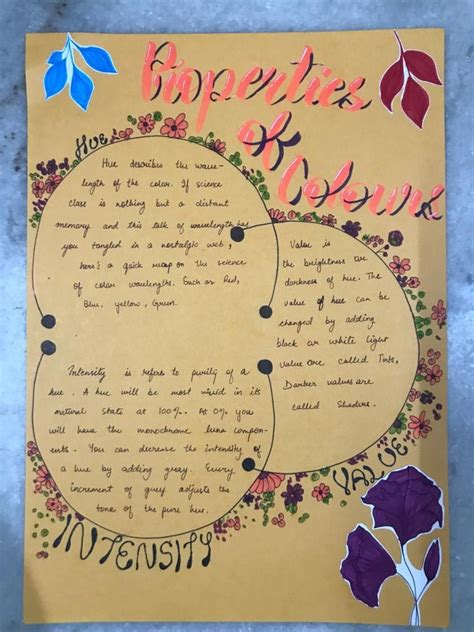 Properties
of
Colours
HUE
Hue describes the wave-
length of the colour. If science
class is nothing but a distant
memory and this talk of wavelength has
you tangled in a nostalgic web,
here's a quick recap on the science
of color wavelengths. Such as Red,
Blue, yellow, Green.
Value is
the brightness or
darkness of hue. The
value of hue can be
changed by adding
black or white light
value are called Tints,
Darker values are
called Shaders.
VALUE
Intensity is refers to purity of a
hue. A hue will be most vivid in its
natural State at 100%. At 0% you
will have the monochrome luna compon-
ents. You can decrease the intensity of
a hue by adding gray. Every
increment of grey adjusts the
tone of the pure hue.
INTENSITY